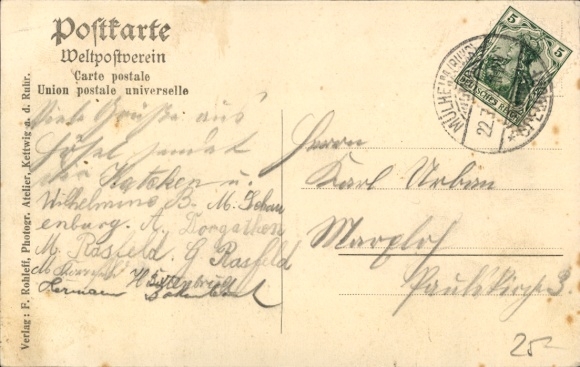 Postkarte
Weltpostverein
Carte postale
Union postale universelle
Verlag: F. Rohleff, Photogr. Atelier, Kettwig a. d. Ruhr.
5 5
DEUTSCHES REICH
MÜLHEIM (RUHR)
22.3
Viele Grüße aus
Hösel sendet
Katchen u.
Wilhelmine B. M. Schau
enburg. A.
M. Rasfeld. G Rasfeld
Hermann
Herrn
Karl Urban
Marxloh
Paulskirchstr. 3.
25